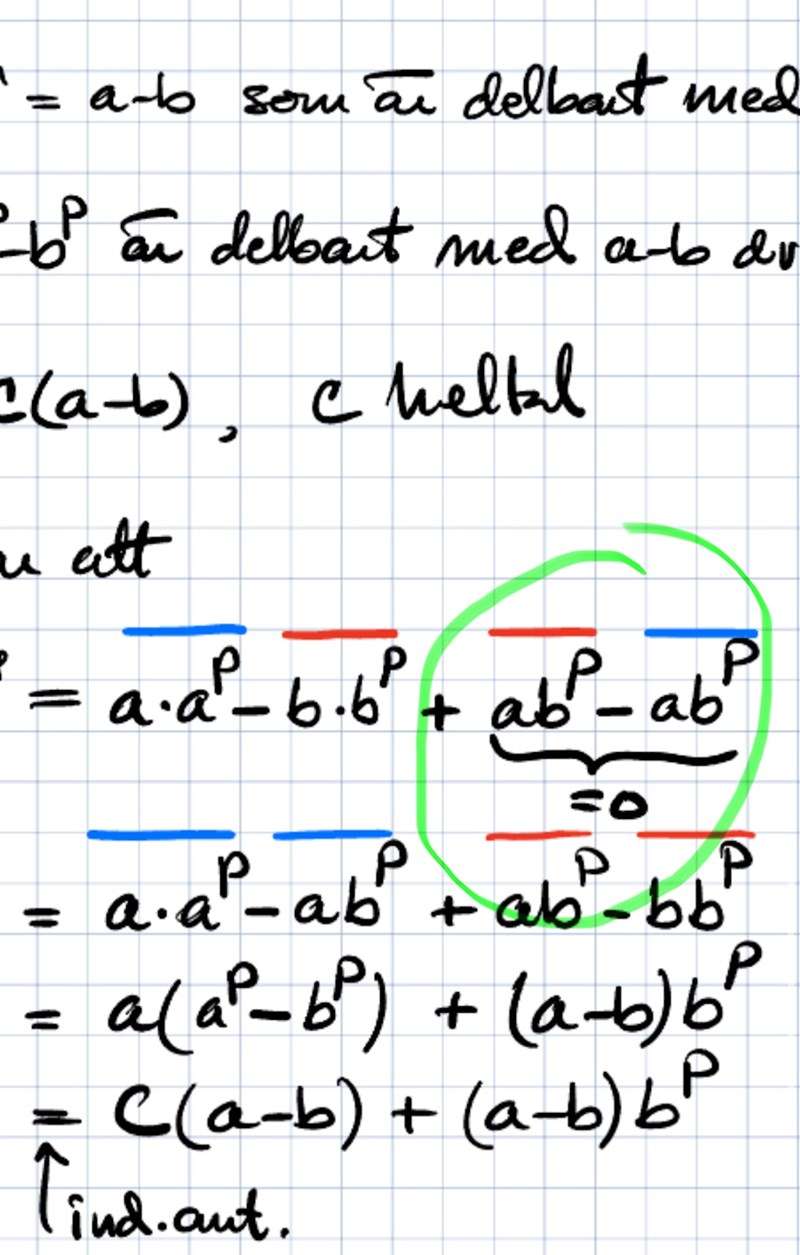 = a-b som är delbart med
-b^p är delbart med a-b dv
C(a-b), C heltal
att
= a·a^p - b·b^p + ab^p - ab^p
=0
= a·a^p - ab^p + ab^p - bb^p
= a(a^p - b^p) + (a-b)b^p
= C(a-b) + (a-b)b^p
↑ ind.ant.